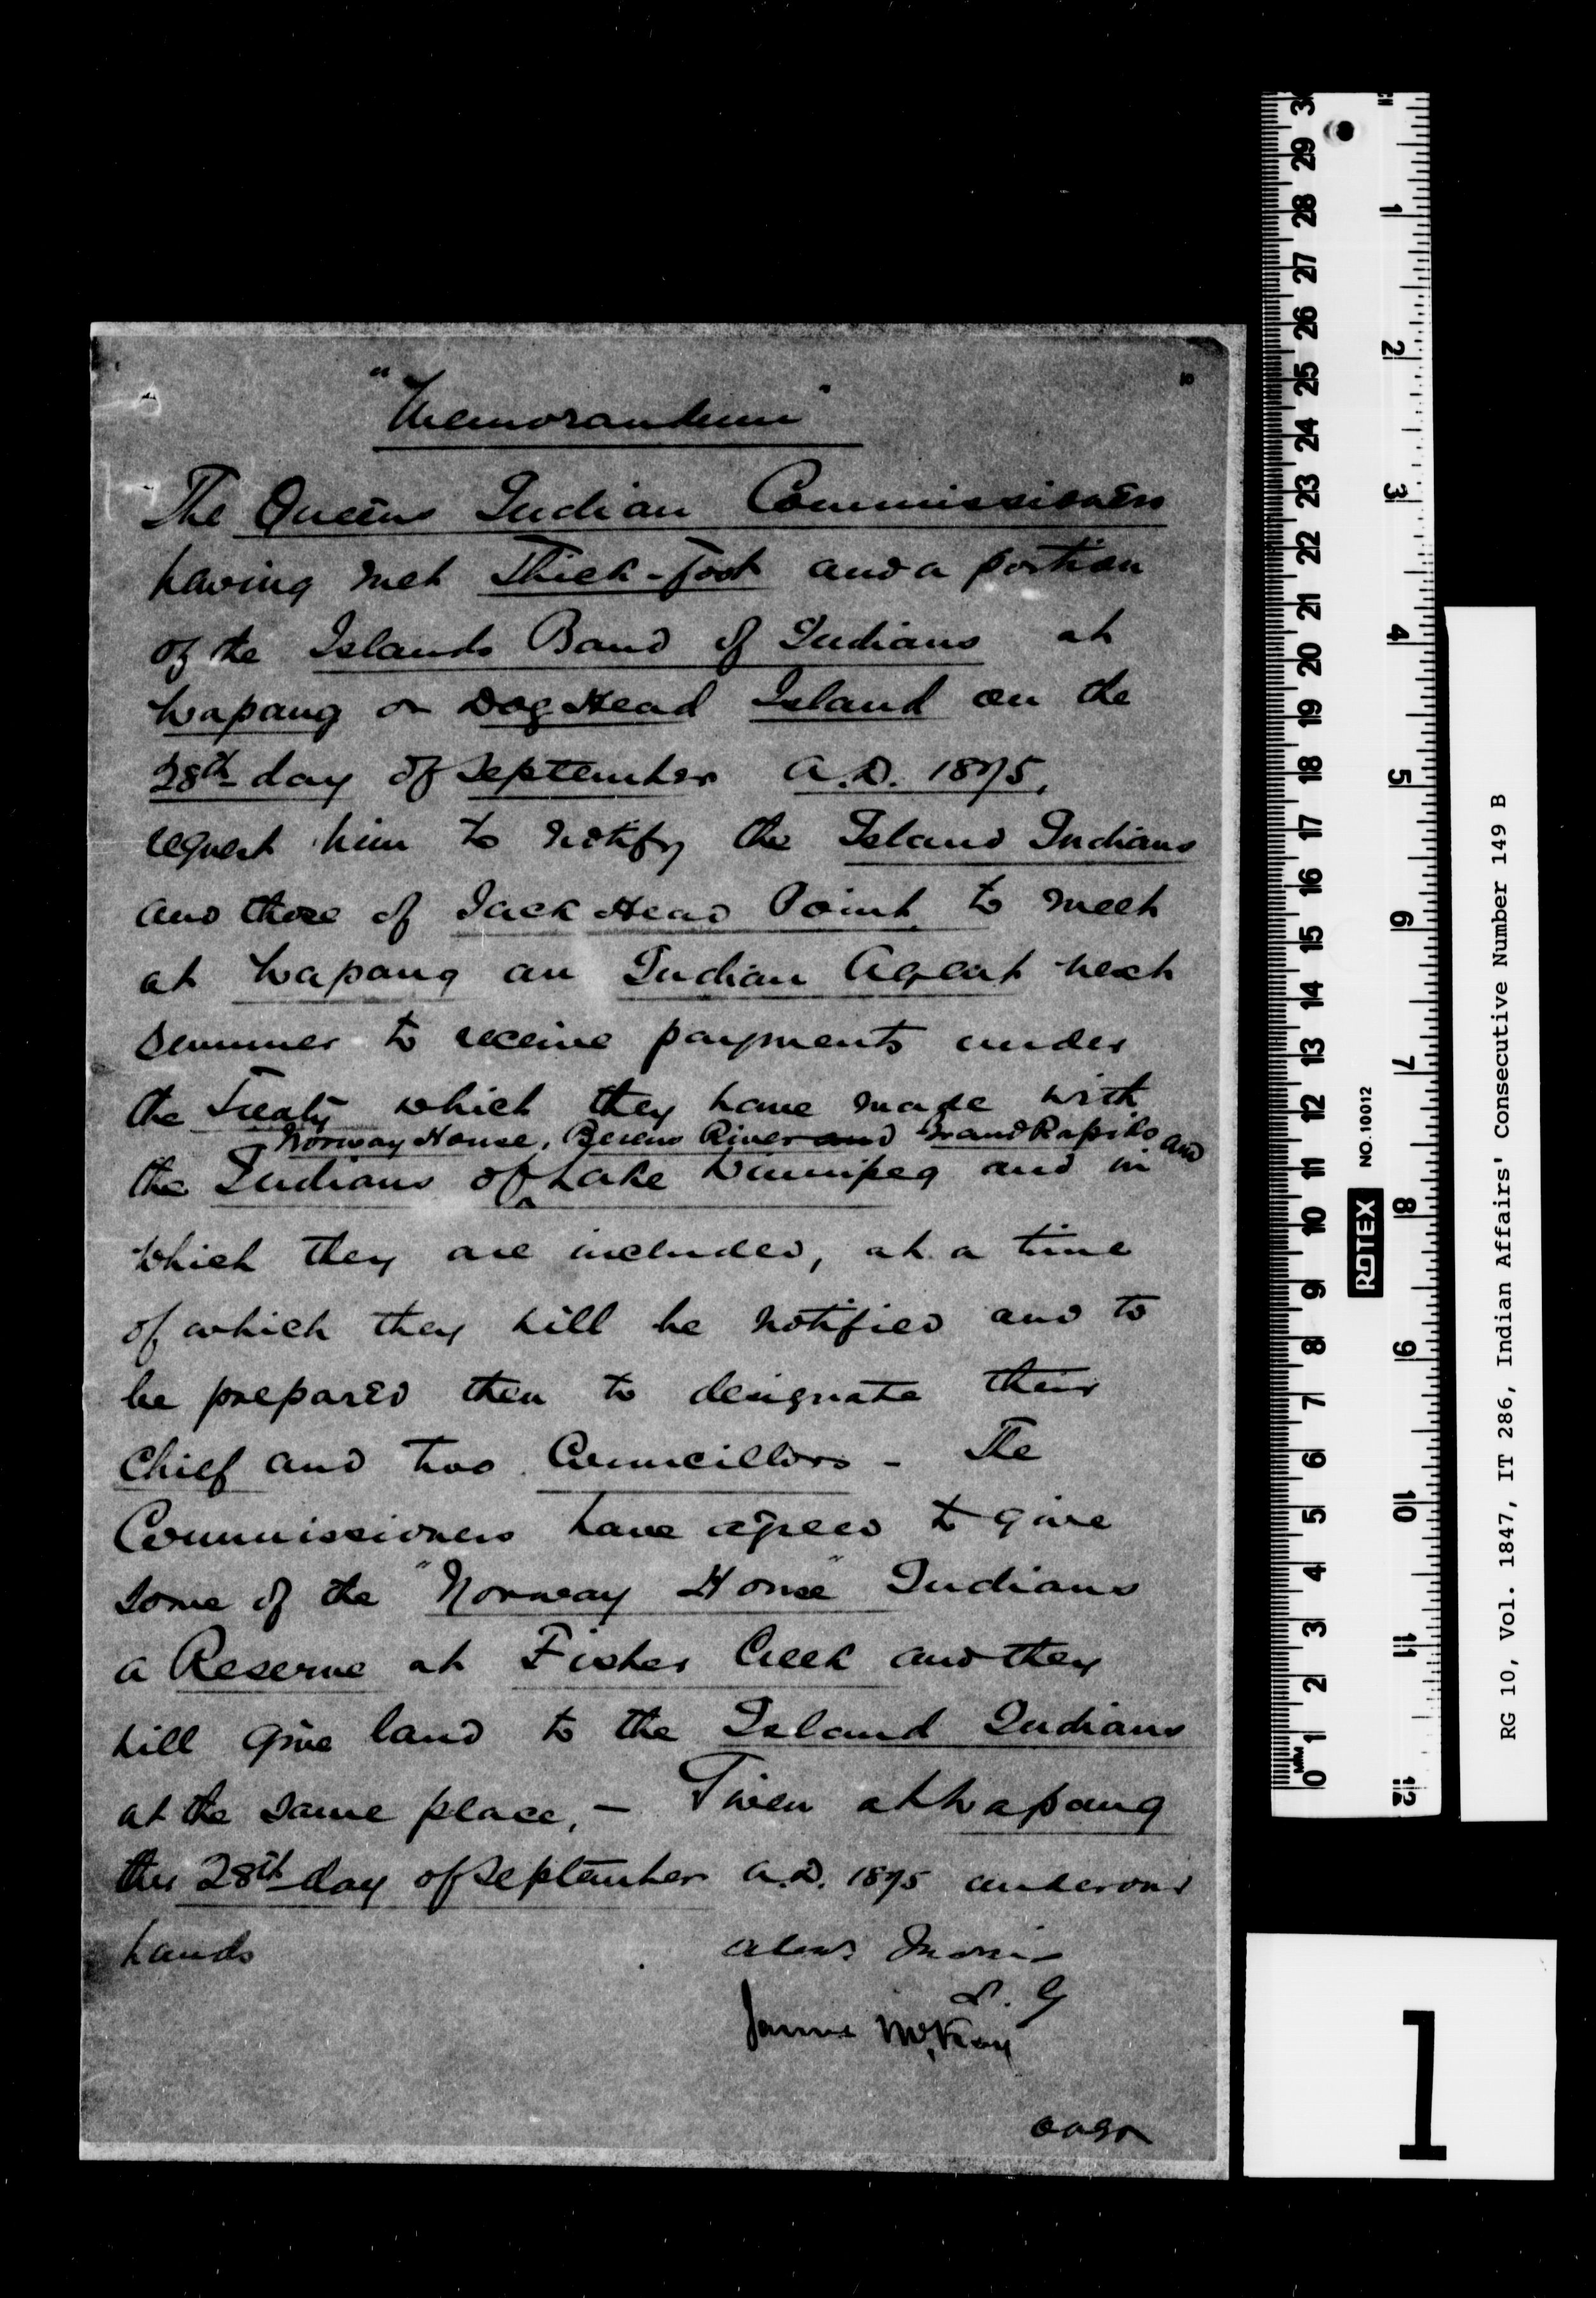 "Memorandum"
The Queens Indian Commissioners
having met Thick-Foot and a portion
of the Islands Band of Indians at
Wapang or Dog Head Island on the
28th day of September A.D. 1875,
request him to notify the Island Indians
and those of Jack Head Point to meet
at Wapang an Indian Agent next
summer to receive payments under
the Treaty which they have made with
Norway House, Berens River and Grand Rapids and
the Indians of Lake Winnipeg and in
which they are included, at a time
of which they will be notified and to
be prepared then to designate their
Chief and two Councillors - The
Commissioners have agreed to give
some of the "Norway House" Indians
a Reserve at Fisher Creek and they
will give land to the Island Indians
at the same place, - Given at Wapang
this 28th day of September A.D. 1875 under our
hands
Alexr Morris
L. G
James McKay
over
ROTEX NO. 10012
MM
0 1 2 3 4 5 6 7 8 9 10 11 12 13 14 15 16 17 18 19 20 21 22 23 24 25 26 27 28 29
1 2 3 4 5 6 7 8 9 10 11 12
RG 10, Vol. 1847, IT 286, Indian Affairs' Consecutive Number 149 B
1